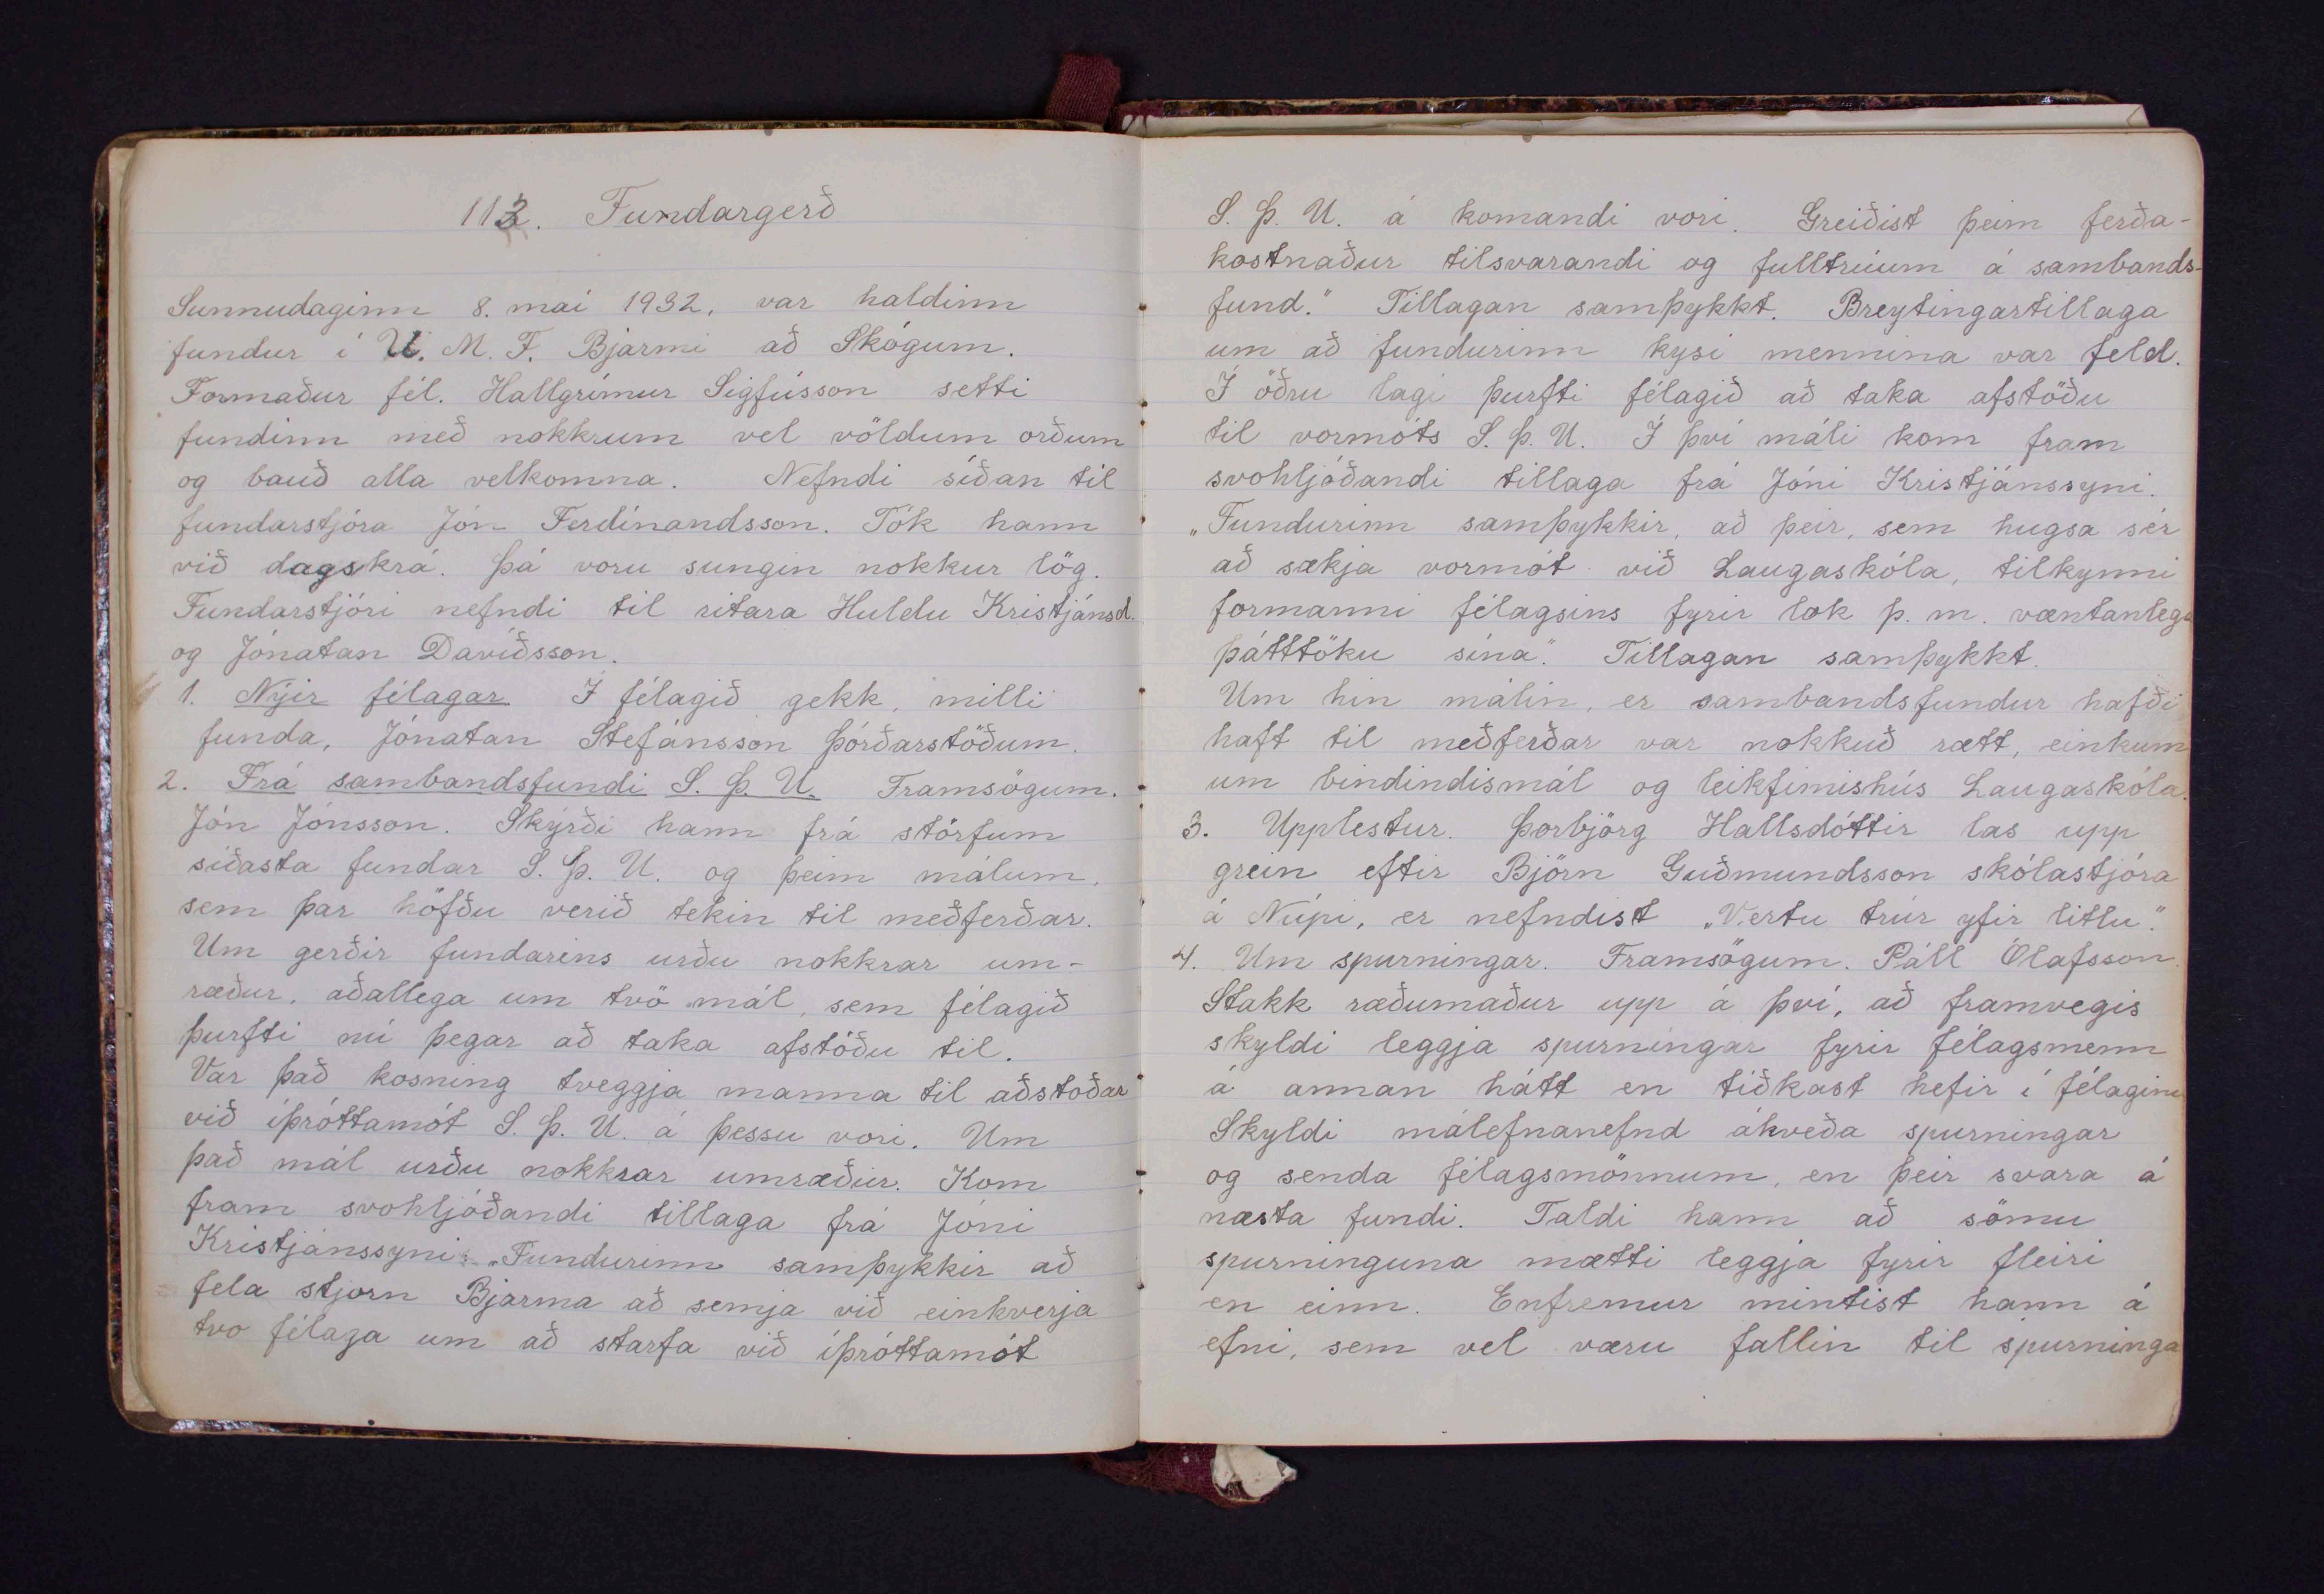 113. Fundargerð
Sunnudaginn 8. maí 1932, var haldinn
fundur í U. M. F. Bjarmi að Skógum.
Formaður fél. Hallgrímur Sigfússon setti
fundinn með nokkrum vel völdum orðum
og bauð alla velkomna. Nefndi síðan til
fundarstjóra Jón Ferdínandsson. Tók hann
við dagskrá. Þá voru sungin nokkur lög.
Fundarstjóri nefndi til ritara Huldu Kristjánsd.
og Jónatan Davíðsson.
1. Nýir félagar. Í félagið gekk, milli
funda, Jónatan Stefánsson Þórðarstöðum.
2. Frá sambandsfundi S. Þ. U. Framsögum.
Jón Jónsson. Skýrði hann frá störfum
síðasta fundar S. Þ. U. og þeim málum,
sem þar höfðu verið tekin til meðferðar.
Um gerðir fundarins urðu nokkrar um-
ræður, aðallega um tvö mál, sem félagið
þurfti nú þegar að taka afstöðu til.
Var það kosning tveggja manna til aðstoðar
við íþróttamót S. Þ. U. á þessu vori. Um
það mál urðu nokkrar umræður. Kom
fram svohljóðandi tillaga frá Jóni
Kristjánssyni: „Fundurinn samþykkir að
fela stjorn Bjarma að semja við einhverja
tvo félaga um að starfa við íþróttamót
S. Þ. U. á komandi vori. Greiðist þeim ferða-
kostnaður tilsvarandi og fulltrúum á sambands-
fund." Tillagan samþykkt. Breytingartillaga
um að fundurinn kysi mennina var feld.
Í öðru lagi þurfti félagið að taka afstöðu
til vormóts S. Þ. U. Í því máli kom fram
svohljóðandi tillaga frá Jóni Kristjánssyni.
„Fundurinn samþykkir, að þeir, sem hugsa sér
að sækja vormót við Laugaskóla, tilkynni
formanni félagsins fyrir lok þ. m. væntanlega
þátttöku sína". Tillagan samþykkt.
Um hin málin, er sambandsfundur hafði
haft til meðferðar var nokkuð rætt, einkum
um bindindismál og leikfimishús Laugaskóla.
3. Upplestur. Þorbjörg Hallsdóttir las upp
grein eftir Björn Guðmundsson skólastjóra
á Núpi, er nefndist „Vertu trúr yfir litlu".
4. Um spurningar. Framsögum. Páll Ólafsson.
Stakk ræðumaður upp á því, að framvegis
skyldi leggja spurningar fyrir félagsmenn
á annan hátt en tíðkast hefir í félaginu
Skyldi málefnanefnd ákveða spurningar
og senda félagsmönnum, en þeir svara á
næsta fundi. Taldi hann að sömu
spurninguna mætti leggja fyrir fleiri
en einn. Enfremur mintist hann á
efni, sem vel væru fallin til spurninga